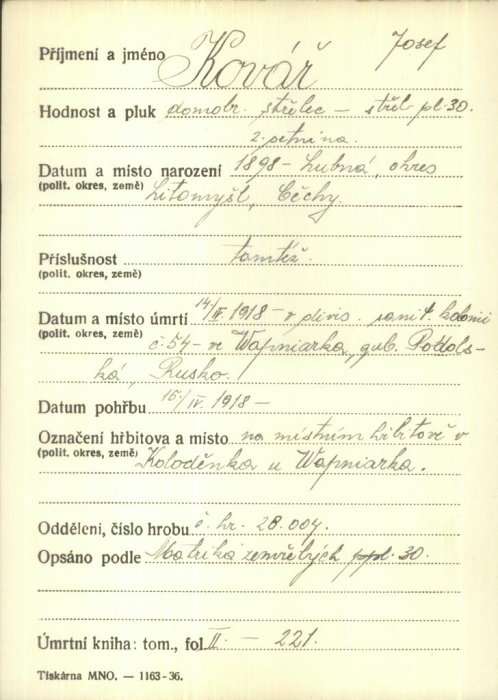 Příjmení a jméno Kovář Josef
Hodnost a pluk domobr. střelec – střel. pl. 30.
2. setnina.
Datum a místo narození 1898 – Lubná, okres
(polit. okres, země) Litomyšl, Čechy.
Příslušnost tamtéž.
(polit. okres, země)
Datum a místo úmrtí 14/IV. 1918 – v divis. sanit. koloně
(polit. okres, země) č. 54 – ve Wapniarka, gub. Podols-
ká, Rusko.
Datum pohřbu 15/IV. 1918 –
Označení hřbitova a místo na místním hřbitově v
(polit. okres, země) Koloděnka u Wapniarka.
Oddělení, číslo hrobu č. hr. 28.004.
Opsáno podle Matrika zemřelých pl. 30.
Úmrtní kniha: tom., fol. II. – 221.
Tiskárna MNO. — 1163-36.